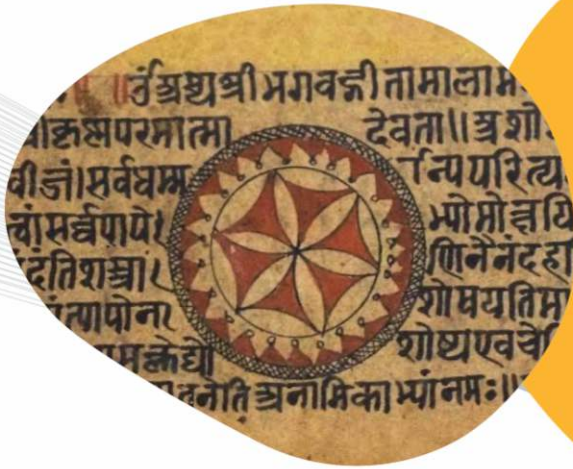 ॥ॐअस्यश्रीभगवद्गीतामालाम
श्रीकृष्णपरमात्मा देवता॥अशो
वीजं।सर्वधम्म न्यपरित्य
त्वांसर्व्वपापे भ्योमोक्षयि
दंतिशस्त्रा णिनैनंदह
त्यापोना शोषयतिमा
मक्लेद्यो शोष्यएवचे
अनामिकाभ्यांनमः॥